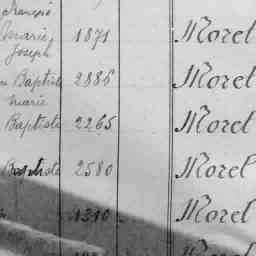 François
Marie 1871 Morel
Joseph
Baptiste 2886 Morel
Marie
Baptiste 2265 Morel
Baptiste 2580 Morel
1310 Morel
Morel